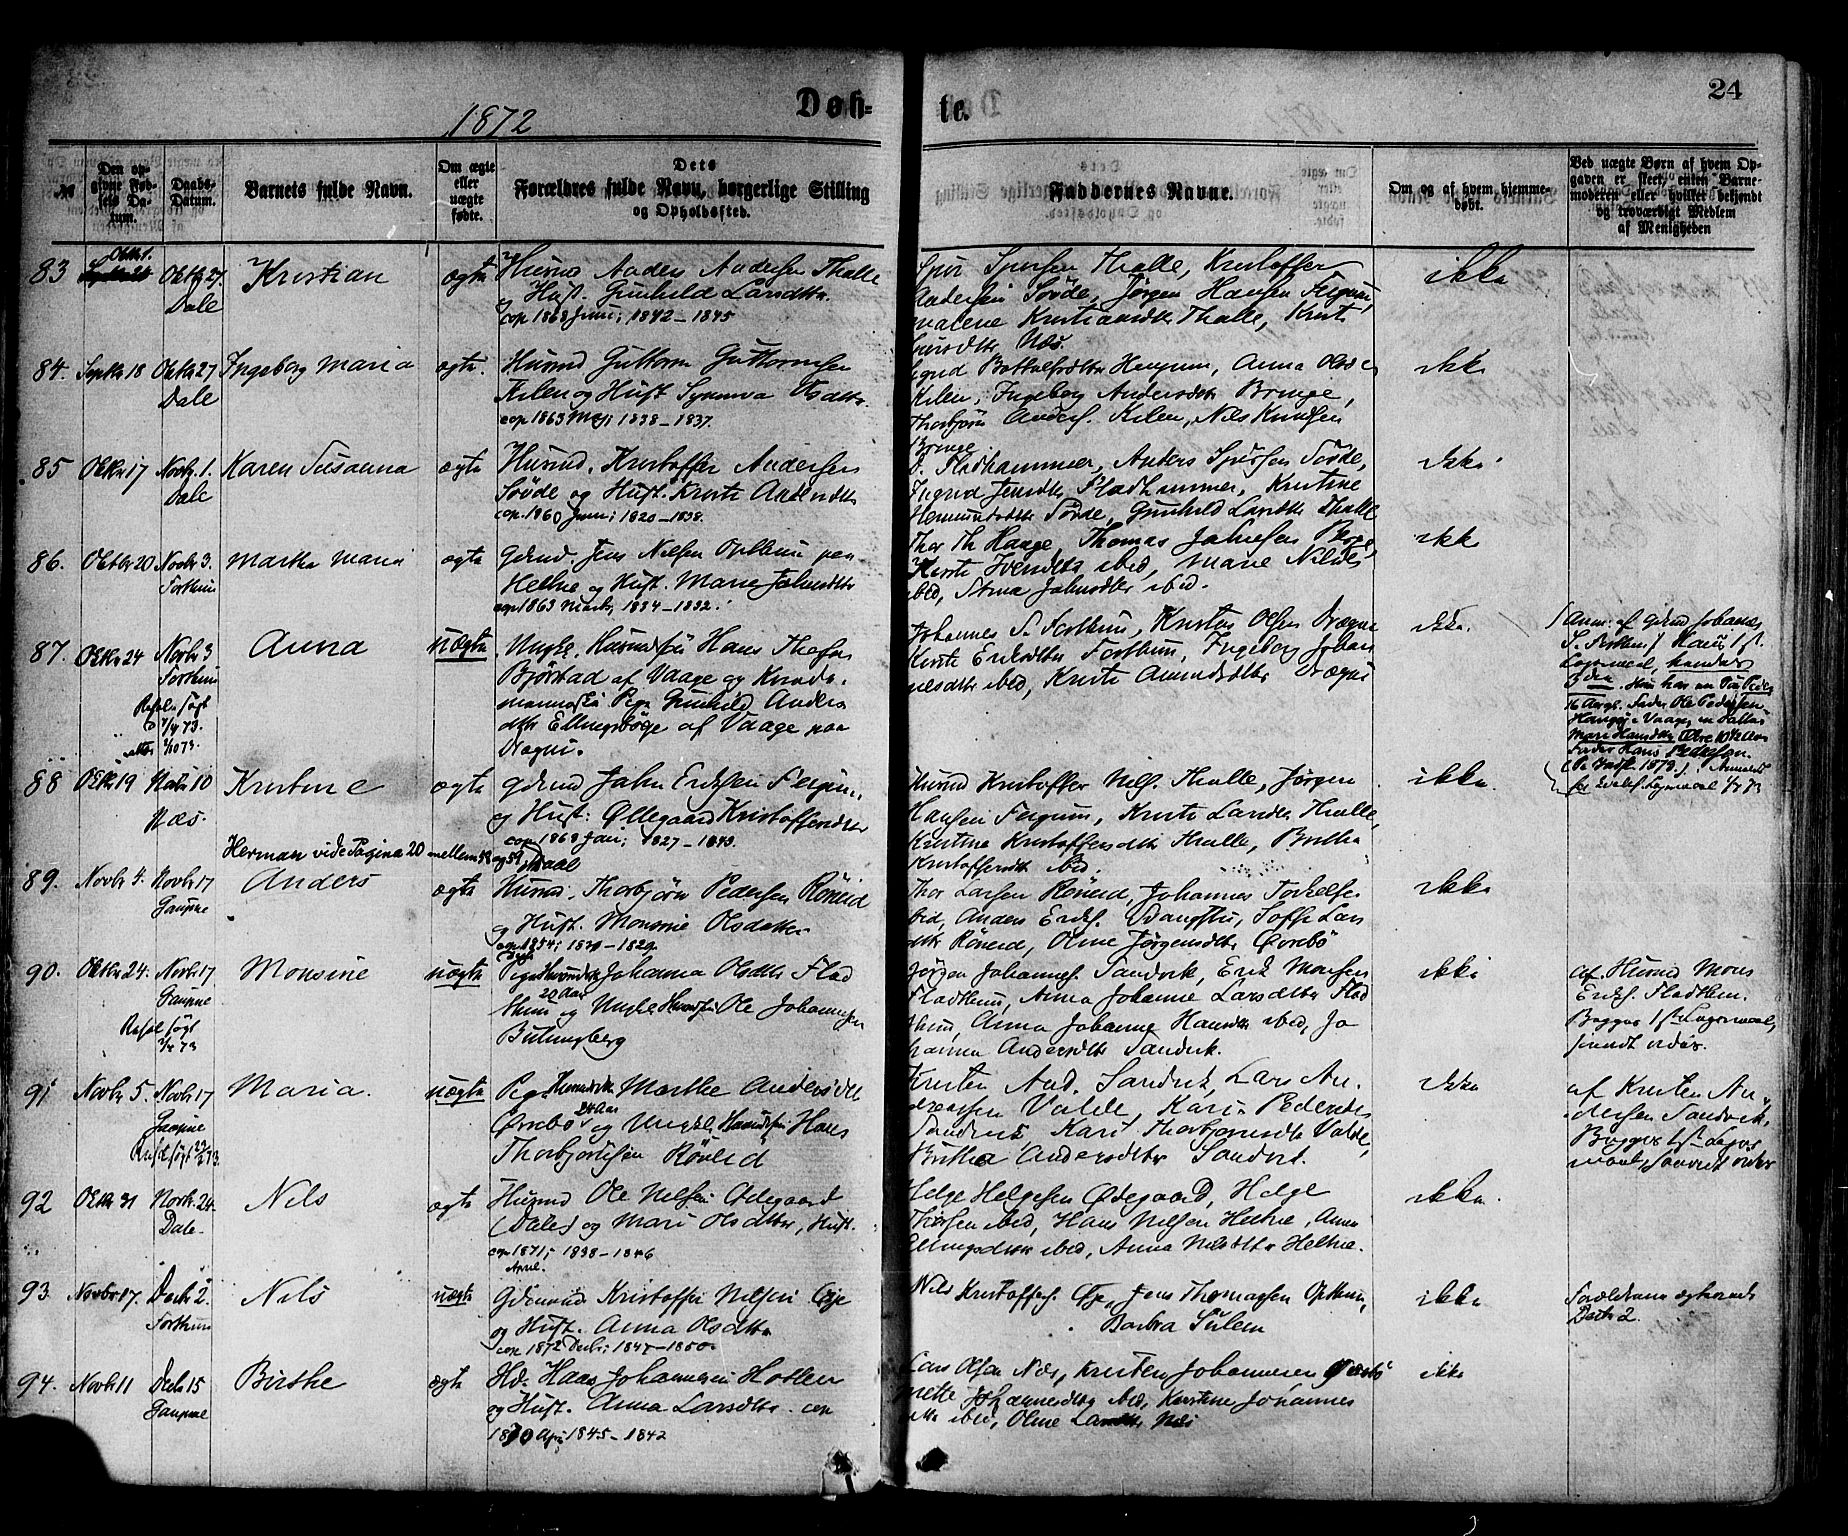 24
1872
Døb=
te.
№
Den opgivne Fødsels Datum.
Daabs-Datum.
Barnets fulde Navn.
Om ægte eller uægte født.
Dets
Forældres fulde Navn, borgerlige Stilling
og Opholdssted.
Faddernes Navne.
Om og af hvem hjemmedøbt.
Ved uægte Børn af hvem Opgaven er skeet, enten Barnemoderen eller hvilket bekjendt og troværdigt Medlem af Menigheden
83 Oktbr 1. Oktbr 27. Dale Kristian ægte Husmd Anders Andersen Thalle
og Hust. Gunhild Larsdtr.
cop 1868 Juni; 1842 – 1845
Sjur Sjursen Thalle, Kristoffer
Andersen Sørde, Jørgen Hansen Fergum,
Malene Kristiansdtr Thalle, Kristi
Sjursdtr Næs.
ikke
84. Septbr 18 Oktbr 27 Dale Ingeborg Maria ægte. Husmd Guttorm Guttormsen
Kilen og Hust Synneva Olsdtr.
cop 1863 Maj; 1838 – 1837.
Sigrid Bottolfsdtr Heggum, Anna Olsd
Kilen, Ingeborg Andersdtr Bringe,
Thorbjørn Anders. Kilen, Nils Knudsen
Bringe
ikke
85 Oktbr 17 Novbr. 1. Dale Karen Susanna ægte Husmd. Kristoffer Andersen
Sørde og Hust. Kristi Andersdtr
cop. 1860 Juni; 1820 – 1838.
Fladhammer, Anders Sjursen Sørde,
Ingrid Jensdtr Fladhammer, Kristine
Hermundsdtr Sørde, Gunhild Larsdtr Thalle
ikke
86. Oktbr 20 Novbr 3. Forthun Martha Maria ægte Gdmd. Jens Nilsen Opthun paa
Heltne og Hust. Marie Johnsdtr
cop 1863 Marts; 1834 – 1832.
Thor Th Haage, Thomas Johnsen Berge,
Kirsti Iversdtr ibid, Marie Nilsdtr
ibid, Stina Johnsdtr ibid.
ikke
87. Oktbr 24 Novbr 3 Forthun Anna uægte Ungk. Husmdssøn Hans Thofsn
Bjørstad af Vaage og Kvinde-
menneske Pige Gunhild Anders
dtr Ellingsbøge af Vaage paa
Drægni.
Johannes S. Forthun, Kristen Olsen Drægni
Kirsti Eriksdtr Forthun, Ingeborg Johan
nesdtr ibid, Kristi Amundsdtr Drægni
ikke.
Anm. af Gdmd Johannes
S. Forthun. Hans 1st
Leiermaal, hendes
3die. Hun har en Søn Peder
16 Aar gl. Fader Ole Pedersen
Vaage, en Datter
Mari Hansdtr 10½ Aar
Fader Hans Pedersen
88 Oktbr 19 Novbr 10 Næs. Kristine ægte Gdmd John Eriksen Fergum,
og Hust: Øllegaard Kristoffersdtr
cop 1868 Juni; 1827 – 1843.
Husmd Kristoffer Nils. Thalle, Jørgen
Hansen Fergum, Kristi Larsdtr Thalle,
Kristina Kristoffersdtr Thalle, Britha
Kristoffersdtr ibid.
ikke.
Herman vide Pagina 20 mellem 58 og 59
89. Novbr 4. Novbr 17 Gaupne Anders ægte Husmd. Thorbjørn Pedersen Røneid
og Hust. Monsine Olsdatter
cop. 1854; 1830 – 1829.
Thor Larsen Røneid, Johannes Torkelsen
ibid, Anders Eriks. Vdangstu, Soffi Lars
dtr Røneid, Oline Jørgensdtr Øvrebø
ikke
90. Oktbr 24. Novbr. 17 Gaupne Monsine uægte Pige Husmdsdtr Johanna Olsdtr Flad
thun 20 Aar og Ungk Husmdssøn Ole Johannesen
Bulingsberg
Jørgen Johannes. Sandvik, Erik Monsen
Fladthun, Anna Johanne Larsdtr Flad
thun, Anna Johanne Hansdtr ibid, Jo
hanna Andersdtr Sandvik.
ikke
af Husmd Mons
Eriks. Fladthun.
Begges 1ste Leiermaal,
91 Novbr 5. Novbr 17 Gaupne Maria. uægte Pige Husmdsdtr Marthe Andersdtr
Øvrebø 24 Aar og Ungk. Husmdssøn Hans
Thorbjørnsen Røneid
Kristen And. Sandvik, Lars An-
dreassen Valde, Kari Pedersdtr
Sandvik, Kari Thorbjørnsdtr Valde,
Britha Andersdtr Sandvik.
ikke
af Kristen An-
dersen Sandvik,
Begges 1ste Leier
maal,
92 Oktbr 31 Novbr. 24. Dale Nils ægte Husmd Ole Nilsen Ødegaard
(Dale) og Mari Olsdtr, Hust.
cop 1871; 1838 – 1846
April.
Helge Helgesen Ødegaard, Helge
Thorsen ibid, Hans Nilsen Heltne, Anna
Ellingsdtr ibid, Anna Nilsdtr Heltne.
ikke.
93. Novbr 17. Decbr 2. Forthun Nils uægte Gdmand Kristoffer Nilsen Øye
og Hust. Anna Olsdtr
cop 1872 Decbr; 1847 – 1850.
Nils Kristoffers. Øye, Jens Thomassen Opthun,
Barbra Sulem
ikke
Forældrene ægteviede
Decbr 2.
94. Novbr 11 Decbr 15 Gaupne Birthe ægte Hd. Hans Johannesen Hollen
og Hust. Anna Larsdtr. cop
1870 Apr; 1845 – 1842
Lars Olsen Næs, Kristen Johannesen
Johannesdtr ibid, Kirstine Johannes
dtr ibid, Oline Larsdtr Næs
ikke